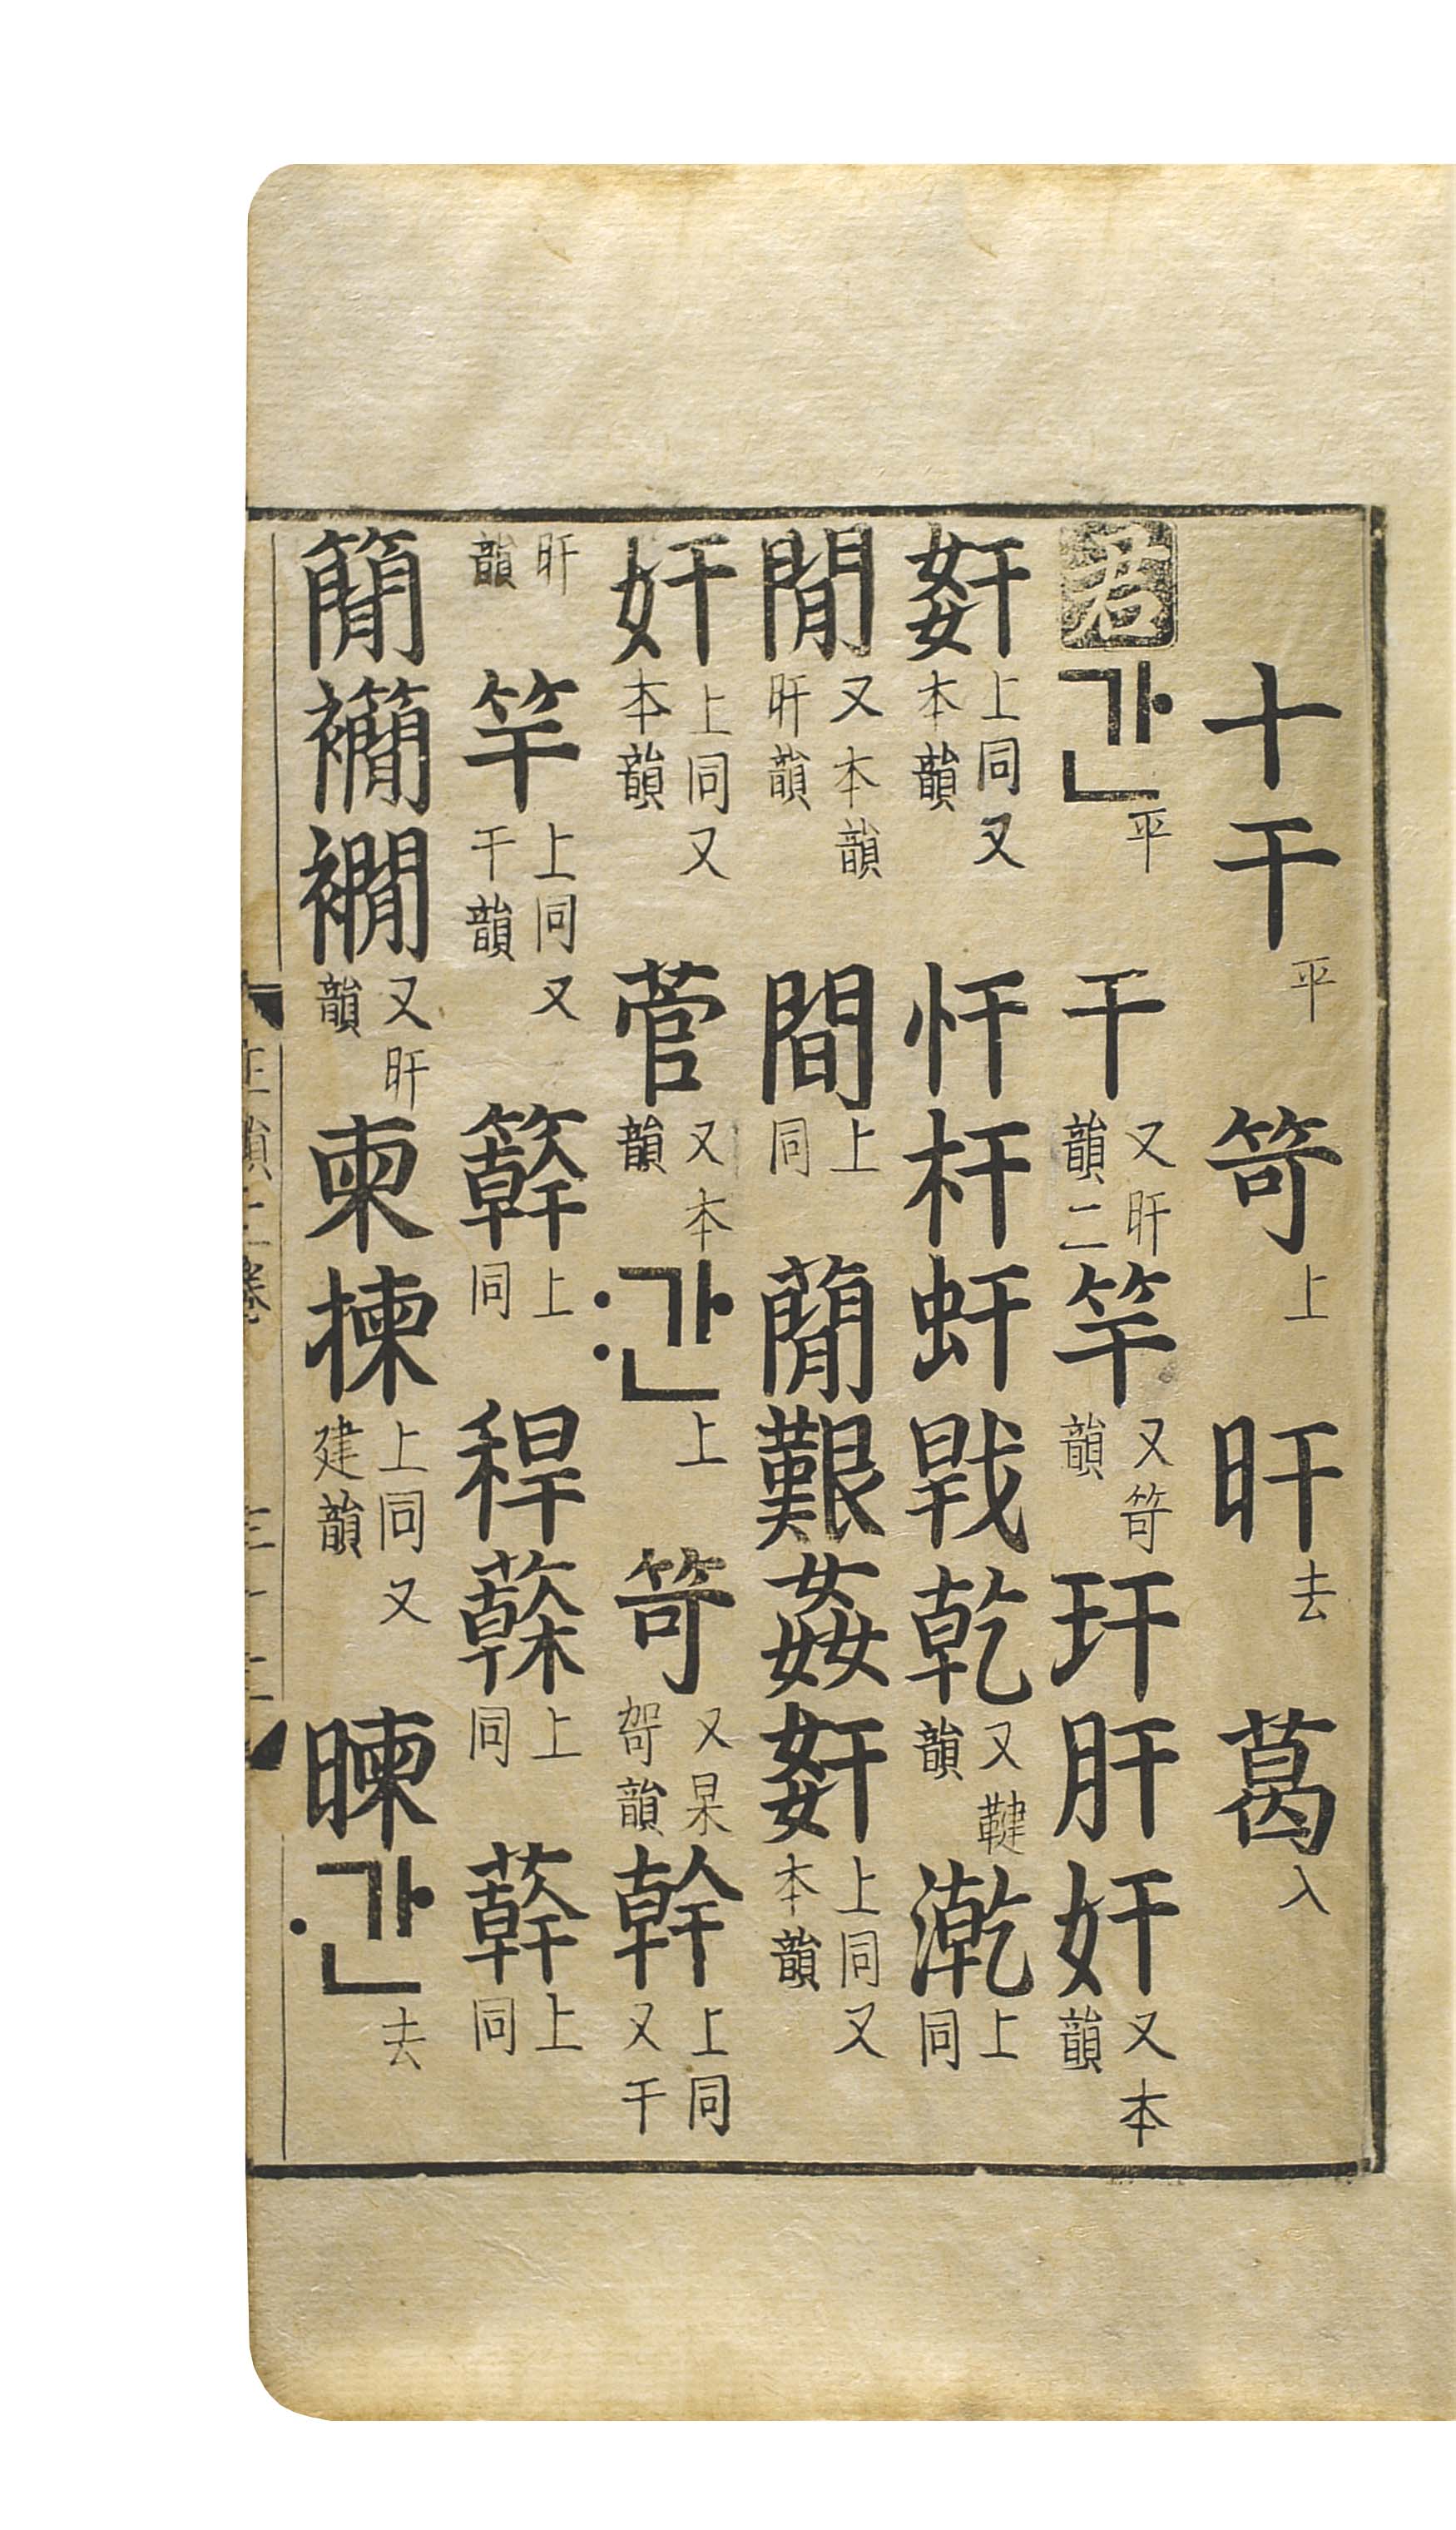 十干平 笴上 旰去 葛入
君 간平 干又旰韻二 竿又笴韻 玕肝奸又本韻
姧上同又本韻 忓杆虷 乾又鞬韻 漧上同
閒又本韻旰韻 間上同 蕑艱姦姧上同又本韻
奸上同又本韻 菅又本韻 간〯上 笴又杲哿韻 幹上同又干
旰韻 竿上同又干韻 簳上同 稈 上同 上同
簡 襇又旰韻 柬揀上同又建韻 暕 간〮去
正韻二卷